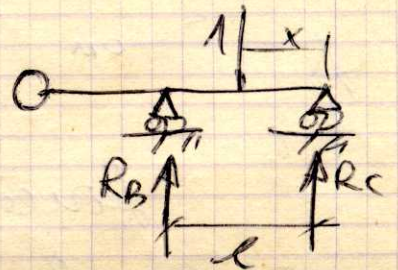 1 x
R_B R_C
l